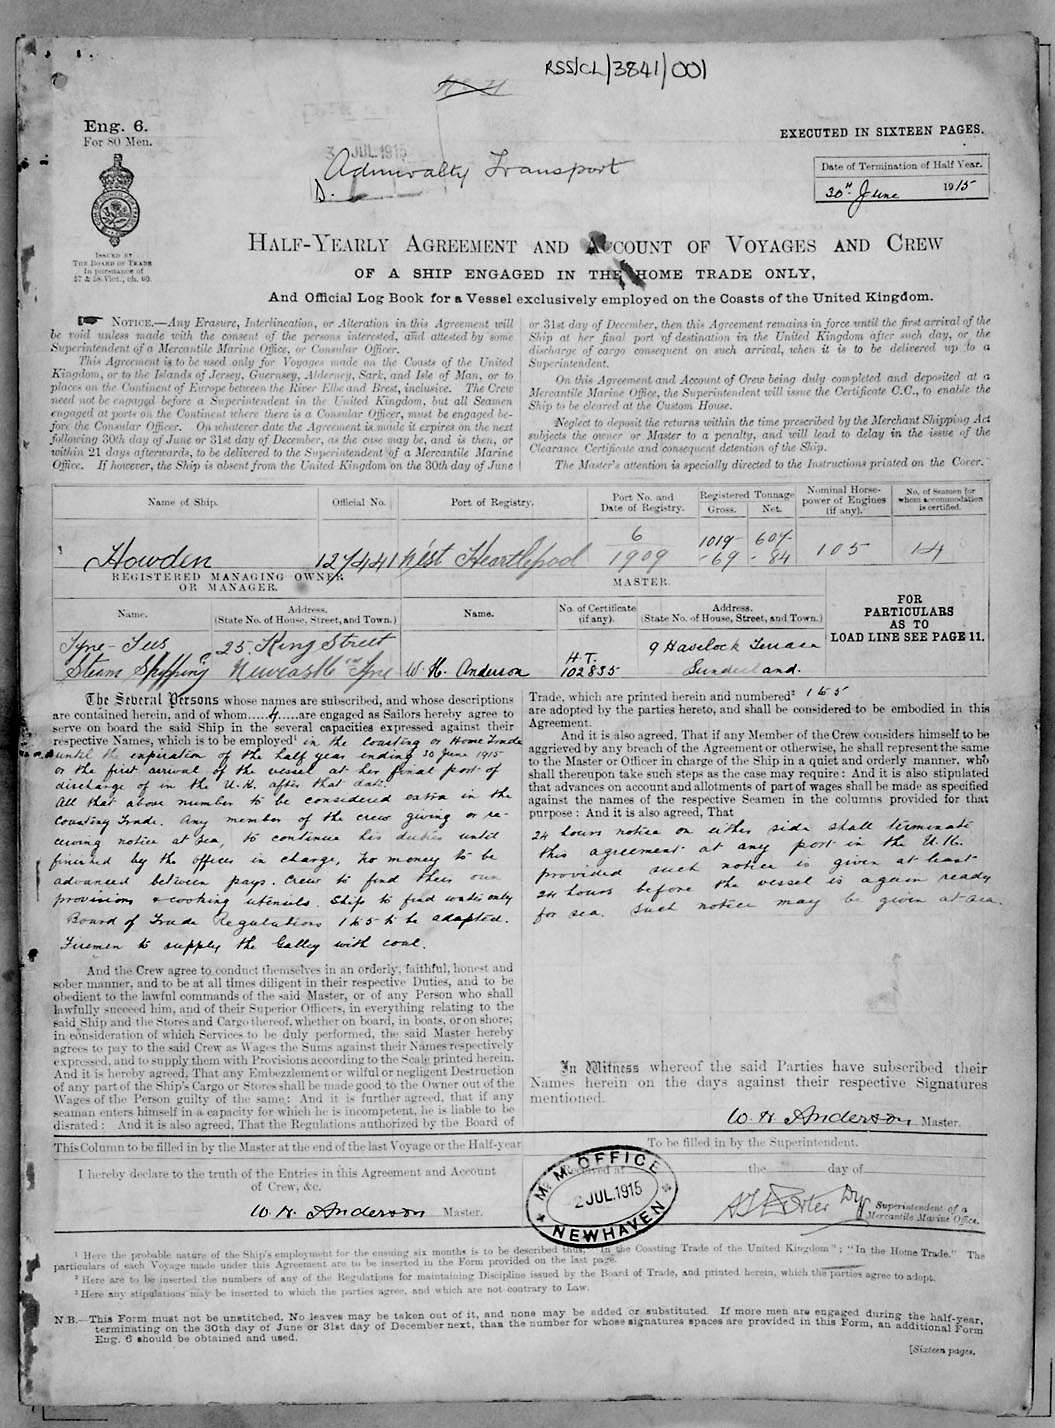 RSS/CL/3841/001
Eng. 6.
For 80 Men.
EXECUTED IN SIXTEEN PAGES.
3 JUL 1915
Admiralty Transport
D.
Date of Termination of Half Year.
30th June 1915
ISSUED BY
THE BOARD OF TRADE
In pursuance of
57 & 58 Vict., ch. 60.
HALF-YEARLY AGREEMENT AND ACCOUNT OF VOYAGES AND CREW
OF A SHIP ENGAGED IN THE HOME TRADE ONLY,
And Official Log Book for a Vessel exclusively employed on the Coasts of the United Kingdom.
NOTICE.—Any Erasure, Interlineation, or Alteration in this Agreement will
be void unless made with the consent of the persons interested, and attested by some
Superintendent of a Mercantile Marine Office, or Consular Officer.
This Agreement is to be used only for Voyages made on the Coasts of the United
Kingdom, or to the Islands of Jersey, Guernsey, Alderney, Sark, and Isle of Man, or to
places on the Continent of Europe between the River Elbe and Brest, inclusive. The Crew
need not be engaged before a Superintendent in the United Kingdom, but all Seamen
engaged at ports on the Continent where there is a Consular Officer, must be engaged be-
fore the Consular Officer. On whatever date the Agreement is made it expires on the next
following 30th day of June or 31st day of December, as the case may be, and is then, or
within 21 days afterwards, to be delivered to the Superintendent of a Mercantile Marine
Office. If however, the Ship is absent from the United Kingdom on the 30th day of June
or 31st day of December, then this Agreement remains in force until the first arrival of the
Ship at her final port of destination in the United Kingdom after such day, or the
discharge of cargo consequent on such arrival, when it is to be delivered up to a
Superintendent.
On this Agreement and Account of Crew being duly completed and deposited at a
Mercantile Marine Office, the Superintendent will issue the Certificate C.C., to enable the
Ship to be cleared at the Custom House.
Neglect to deposit the returns within the time prescribed by the Merchant Shipping Act
subjects the owner or Master to a penalty, and will lead to delay in the issue of the
Clearance Certificate and consequent detention of the Ship.
The Master's attention is specially directed to the Instructions printed on the Cover.
Name of Ship. Official No. Port of Registry. Port No. and Date of Registry. Registered Tonnage Gross. Net. Nominal Horse-power of Engines (if any). No. of Seamen for whom accommodation is certified.
Howden 127441 West Hartlepool 6/1909 1019-69 607-84 105 14
REGISTERED MANAGING OWNER OR MANAGER.
MASTER.
Name. Address. (State No. of House, Street, and Town.) Name. No. of Certificate (if any). Address. (State No. of House, Street, and Town.)
FOR
PARTICULARS
AS TO
LOAD LINE SEE PAGE 11.
Tyne-Tees 25. King Street 9 Havelock Terrace
Steam Shipping Co Newcastle on Tyne W. H. Anderson H.T. 102835 Sunderland.
The Several Persons whose names are subscribed, and whose descriptions
are contained herein, and of whom.....4.....are engaged as Sailors hereby agree to
serve on board the said Ship in the several capacities expressed against their
respective Names, which is to be employed¹ in the Coasting or Home Trade
until the expiration of the half year ending 30 June 1915
or the first arrival of the vessel at her final port of
discharge of in the U.K. after that date.
All that above number to be considered extra in the
Coasting Trade. Any member of the crew giving or re-
ceiving notice at sea, to continue his duties until
finished by the officer in charge, no money to be
advanced between pays. Crew to find their own
provisions & cooking utensils. Ship to find water only
Board of Trade Regulations 1 to 5 to be adopted.
Firemen to supply the Galley with coal.
And the Crew agree to conduct themselves in an orderly, faithful, honest and
sober manner, and to be at all times diligent in their respective Duties, and to be
obedient to the lawful commands of the said Master, or of any Person who shall
lawfully succeed him, and of their Superior Officers, in everything relating to the
said Ship and the Stores and Cargo thereof, whether on board, in boats, or on shore;
in consideration of which Services to be duly performed, the said Master hereby
agrees to pay to the said Crew as Wages the Sums against their Names respectively
expressed, and to supply them with Provisions according to the Scale printed herein.
And it is hereby agreed, That any Embezzlement or wilful or negligent Destruction
of any part of the Ship's Cargo or Stores shall be made good to the Owner out of the
Wages of the Person guilty of the same: And it is further agreed, that if any
seaman enters himself in a capacity for which he is incompetent, he is liable to be
disrated: And it is also agreed, That the Regulations authorized by the Board of
Trade, which are printed herein and numbered² 1 to 5
are adopted by the parties hereto, and shall be considered to be embodied in this
Agreement.
And it is also agreed, That if any Member of the Crew considers himself to be
aggrieved by any breach of the Agreement or otherwise, he shall represent the same
to the Master or Officer in charge of the Ship in a quiet and orderly manner, who
shall thereupon take such steps as the case may require: And it is also stipulated
that advances on account and allotments of part of wages shall be made as specified
against the names of the respective Seamen in the columns provided for that
purpose: And it is also agreed, That
24 hours notice on either side shall terminate
this agreement at any port in the U.K.
provided such notice is given at least
24 hours before the vessel is again ready
for sea. Such notice may be given at sea.
In Witness whereof the said Parties have subscribed their
Names herein on the days against their respective Signatures
mentioned.
W. H. Anderson Master.
This Column to be filled in by the Master at the end of the last Voyage or the Half-year
I hereby declare to the truth of the Entries in this Agreement and Account
of Crew, &c.
W. H. Anderson Master.
To be filled in by the Superintendent.
the day of
M. M. OFFICE
2 JUL. 1915
NEWHAVEN
Superintendent of a
Mercantile Marine Office.
¹ Here the probable nature of the Ship's employment for the ensuing six months is to be described thus, "In the Coasting Trade of the United Kingdom"; "In the Home Trade." The
particulars of each Voyage made under this Agreement are to be inserted in the Form provided on the last page.
² Here are to be inserted the numbers of any of the Regulations for maintaining Discipline issued by the Board of Trade, and printed herein, which the parties agree to adopt.
³ Here any stipulations may be inserted to which the parties agree, and which are not contrary to Law.
N.B.—This Form must not be unstitched. No leaves may be taken out of it, and none may be added or substituted. If more men are engaged during the half-year,
terminating on the 30th day of June or 31st day of December next, than the number for whose signatures spaces are provided in this Form, an additional Form
Eng. 6 should be obtained and used.
[Sixteen pages.